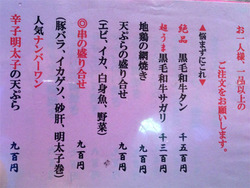 お一人様、一品以上の
ご注文をお願いします。
♥悩まずにこれ♥
絶品 黒毛和牛タン 千五百円
超うま 黒毛和牛サガリ 千三百円
地鶏の網焼き 九百円
天ぷらの盛り合せ 九百円
(エビ、イカ、白身魚、野菜)
◎串の盛り合せ 九百円
(豚バラ、イカゲソ、砂肝、明太子巻)
人気ナンバーワン
辛子明太子の天ぷら 九百円